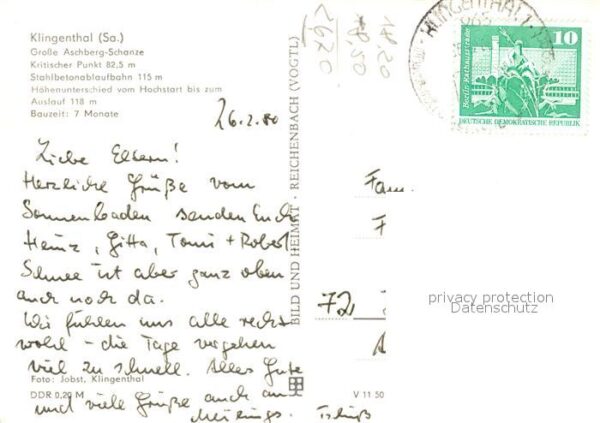 Klingenthal (Sa.)
Große Aschberg-Schanze
Kritischer Punkt 82,5 m
Stahlbetonablaufbahn 115 m
Höhenunterschied vom Hochstart bis zum
Auslauf 118 m
Bauzeit: 7 Monate
26.2.80
Liebe Eltern!
Herzliche Grüße vom
Sonnenbaden senden Euch
Heinz, Gitta, Tomi + Robert
Schnee ist aber ganz oben
auch noch da.
Wir fühlen uns alle recht
wohl - die Tage vergehen
viel zu schnell. Alles Gute
und viele Grüße auch an
Tschüß
Foto: Jobst, Klingenthal
DDR 0,20 M
BILD UND HEIMAT · REICHENBACH (VOGTL)
V 11 50
2620
18.20
18.50
KLINGENTHAL 1
965
10
Berlin, Rathausstraße
DEUTSCHE DEMOKRATISCHE REPUBLIK
Fam
F
72
privacy protection
Datenschutz